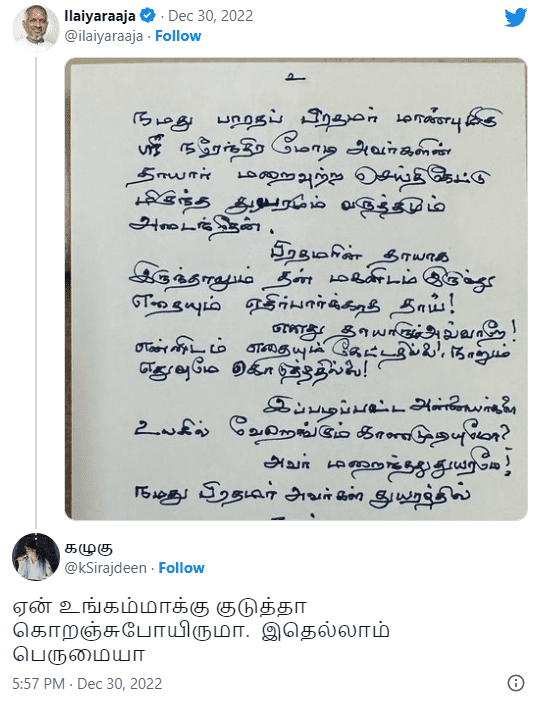 Ilaiyaraaja · Dec 30, 2022
@ilaiyaraaja · Follow
உ
நமது பாரதப் பிரதமர் மாண்புமிகு
ஸ்ரீ நரேந்திர மோடி அவர்களின்
தாயார் மறைவுற்ற செய்திகேட்டு
மிகுந்த துயரமும் வருத்தமும்
அடைந்தேன்.
பிரதமரின் தாயாக
இருந்தாலும் தன் மகனிடம் இருந்து
எதையும் எதிர்பார்க்காத தாய்!
எனது தாயாரும் அவ்வாறே!
என்னிடம் எதையும் கேட்டதில்லை, நானும்
எதுவுமே கொடுத்ததில்லை!
இப்படிப்பட்ட அன்னையர்களை
உலகில் வேறெங்கும் காணமுடியுமோ?
அவர் மறைந்தது துயரமே!
நமது பிரதமர் அவர்கள் துயரத்தில்
கழுகு
@kSirajdeen · Follow
ஏன் உங்கம்மாக்கு குடுத்தா
கொறஞ்சுபோயிருமா. இதெல்லாம்
பெருமையா
5:57 PM · Dec 30, 2022